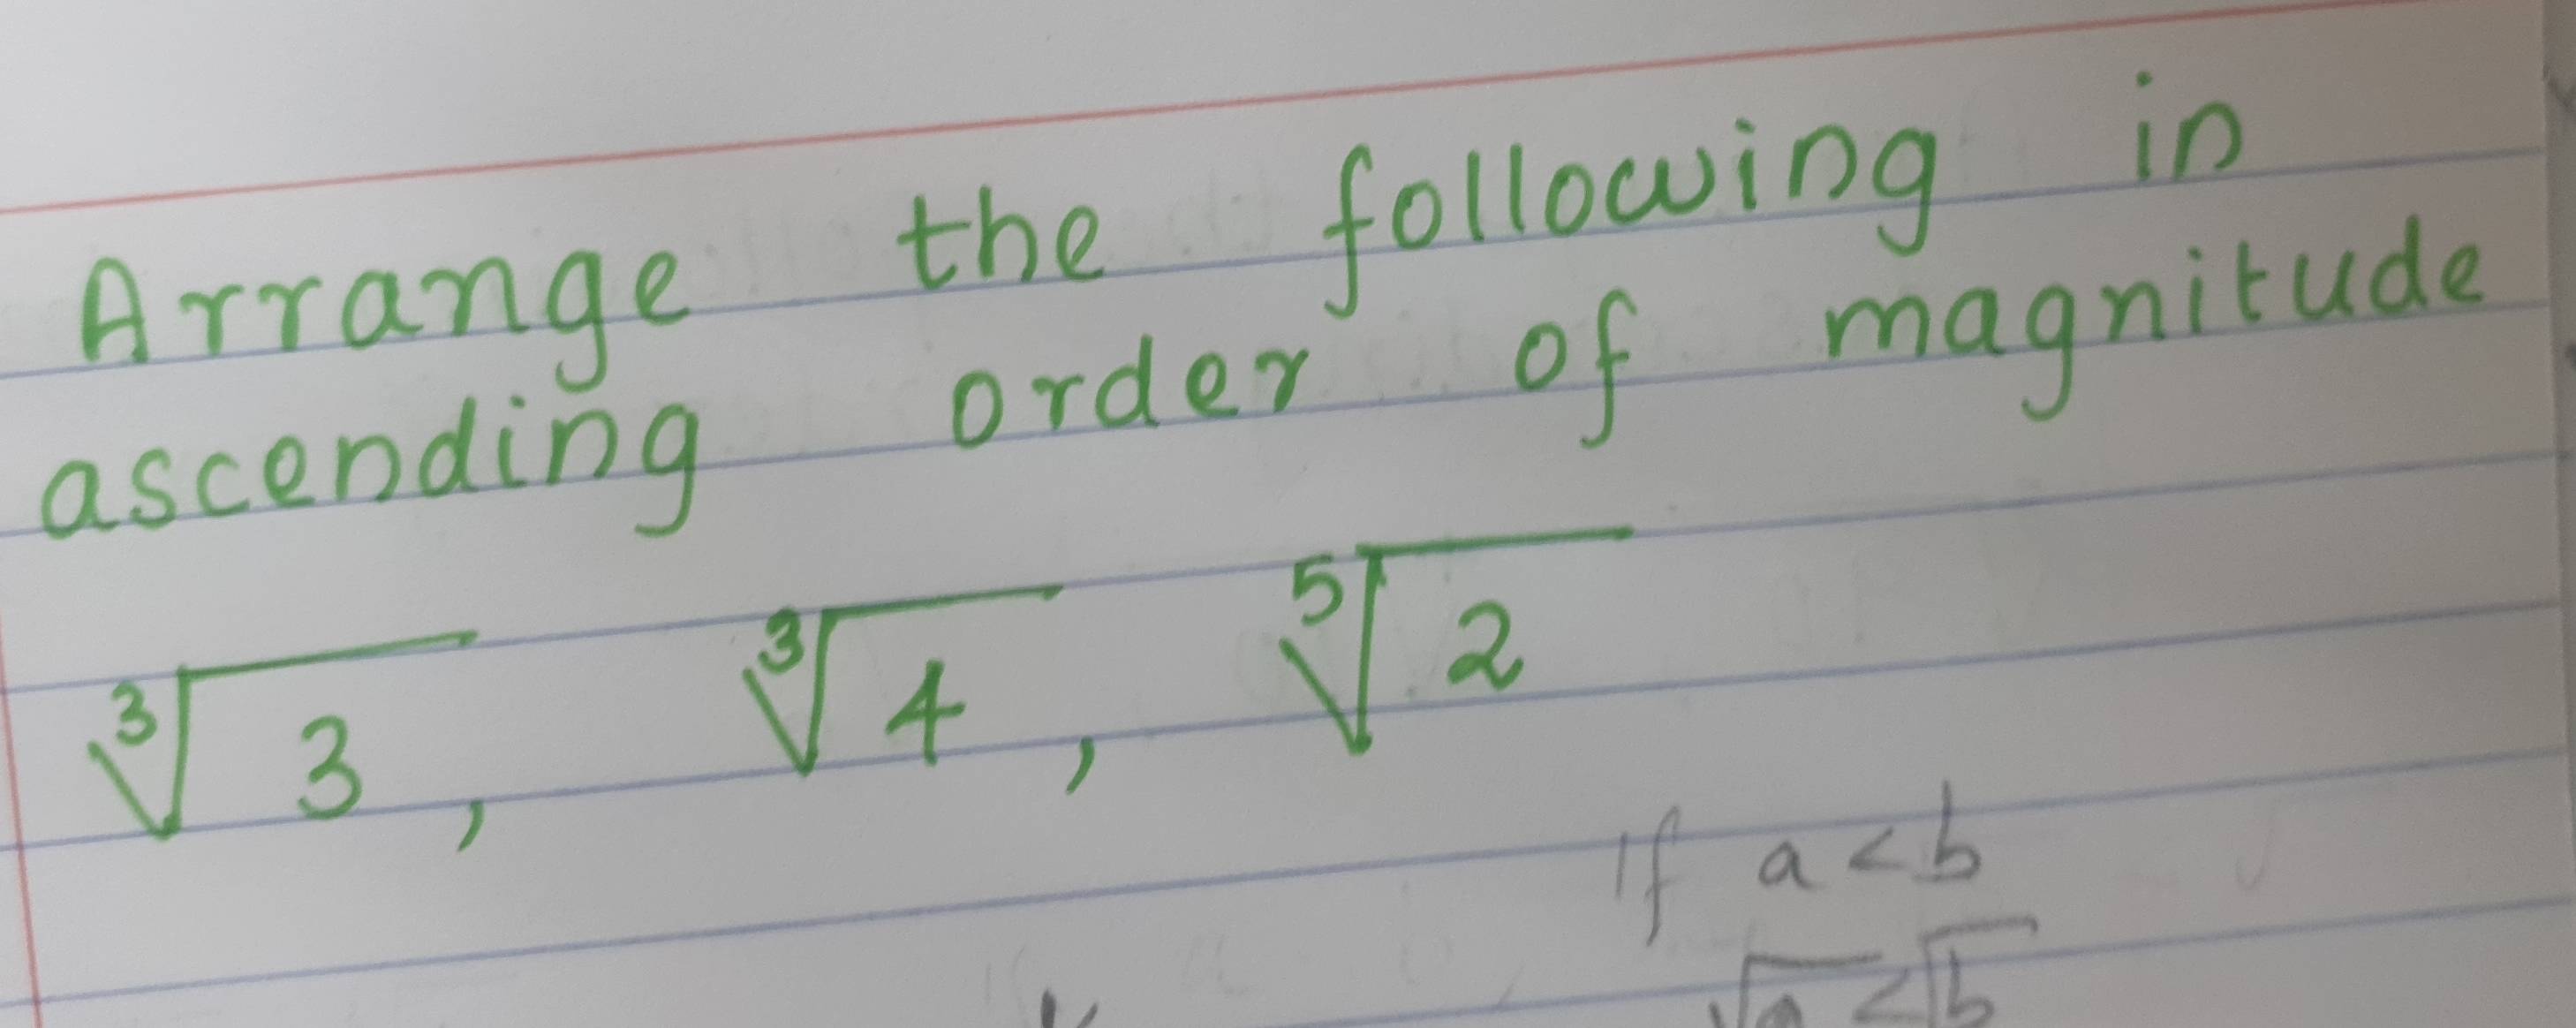 Arrange the following in
ascending order of magnitude
∛3, ∛4, ⁵√2
If a < b
√a < √b